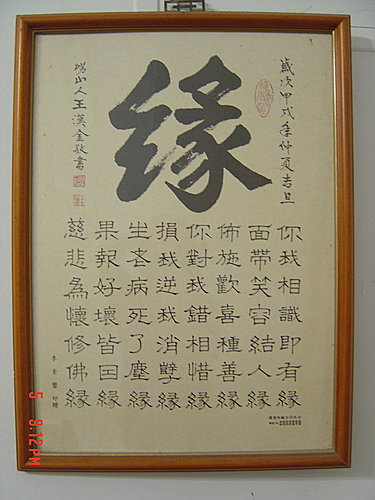 歲次甲戌年仲夏吉旦
緣
嶗山人王漢金敬書
你我相識即有緣
面帶笑容結人緣
佈施歡喜種善緣
你對我錯相惜緣
損我逆我消孽緣
生老病死了塵緣
果報好壞皆因緣
慈悲為懷修佛緣
印贈
5 9:12 PM